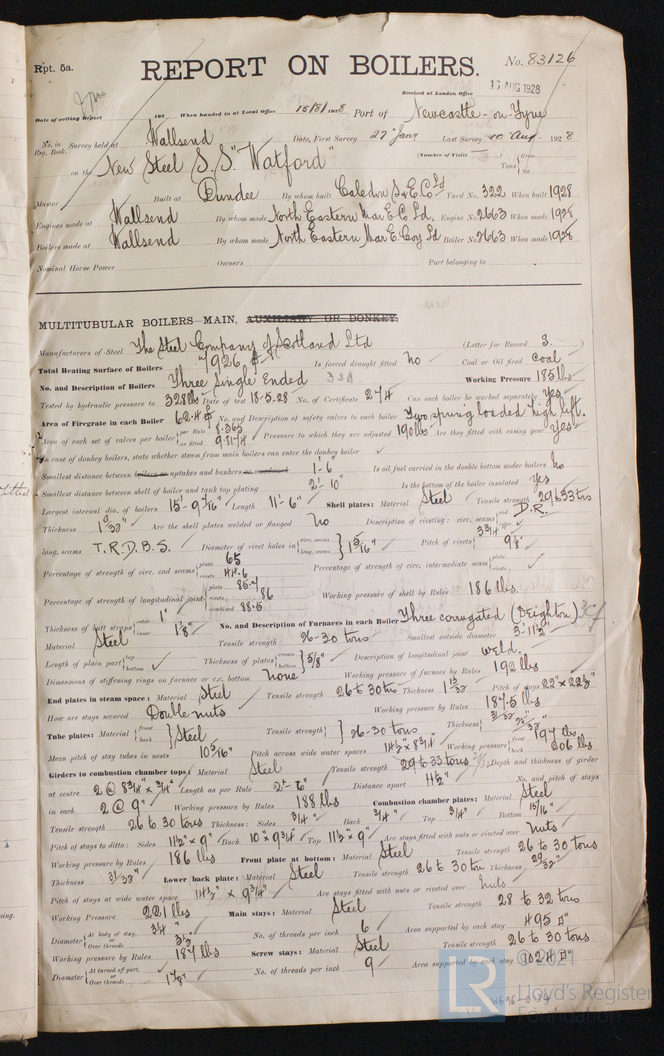 Rpt. 5a.
REPORT ON BOILERS.
No. 83126
Received at London Office 15 AUG 1928
Date of writing Report 192 When handed in at Local Office 15/8/1928 Port of Newcastle-on-Tyne
No. in Reg. Book. Survey held at Wallsend Date, First Survey 27 Jany Last Survey 10 Aug. 1928
(Number of Visits )
on the New Steel S.S. "Watford" Tons Gross Net
Master Built at Dundee By whom built Caledon S & E Co Ld Yard No. 322 When built 1928
Engines made at Wallsend By whom made North Eastern Mar E. Co Ld. Engine No. 2663 When made 1928
Boilers made at Wallsend By whom made North Eastern Mar E Coy Ld Boiler No. 2663 When made 1928
Nominal Horse Power Owners Port belonging to
MULTITUBULAR BOILERS MAIN, AUXILIARY OR DONKEY.
Manufacturers of Steel The Steel Company of Scotland Ltd (Letter for Record S. )
Total Heating Surface of Boilers 7926 Is forced draught fitted No Coal or Oil fired coal
No. and Description of Boilers Three Single Ended Working Pressure 185 lbs
Tested by hydraulic pressure to 328 lbs Date of test 18.5.28 No. of Certificate 274 Can each boiler be worked separately yes
Area of Firegrate in each Boiler 62.4 No. and Description of safety valves to each boiler Two spring loaded high lift.
Area of each set of valves per boiler per Rule 8.365 as fitted Pressure to which they are adjusted 190 lbs Are they fitted with easing gear yes
In case of donkey boilers, state whether steam from main boilers can enter the donkey boiler
Smallest distance between boilers or uptakes and bunkers or woodwork 1'-6" Is oil fuel carried in the double bottom under boilers No
Smallest distance between shell of boiler and tank top plating 2'-10" Is the bottom of the boiler insulated yes
Largest internal dia. of boilers 15'-9 7/16" Length 11'-6" Shell plates: Material Steel Tensile strength 29 to 33 tons
Thickness 1 9/32" Are the shell plates welded or flanged No Description of riveting: circ. seams end D.R. inter.
long. seams T.R.D.B.S. Diameter of rivet holes in circ. seams long. seams 1 5/16" Pitch of rivets 3 3/4 9 1/8"
Percentage of strength of circ. end seams plate 65 rivets 44.6 Percentage of strength of circ. intermediate seam plate rivets
Percentage of strength of longitudinal joint plate 85.7 rivets 86 combined 88.5 Working pressure of shell by Rules 186 lbs.
Thickness of butt straps outer 1" inner 1 1/8" No. and Description of Furnaces in each Boiler Three corrugated (Deighton)
Material Steel Tensile strength 26-30 tons Smallest outside diameter 3'-11 1/2"
Length of plain part top bottom Thickness of plates crown bottom 5/8" Description of longitudinal joint weld.
Dimensions of stiffening rings on furnace or c.c. bottom none Working pressure of furnace by Rules 192 lbs
End plates in steam space: Material Steel Tensile strength 26 to 30 tons Thickness 1 13/32" Pitch of stays 22" x 22 1/2"
How are stays secured Double nuts Working pressure by Rules 187.5 lbs
Tube plates: Material front back Steel Tensile strength 26-30 tons Thickness 31/32"
Mean pitch of stay tubes in nests 10 3/16" Pitch across wide water spaces 14 1/2 x 8 3/4" Working pressure front 197 lbs back 206 lbs
Girders to combustion chamber tops: Material Steel Tensile strength 29 to 33 tons Depth and thickness of girder
at centre 2 @ 8 3/4" x 3/4" Length as per Rule 2'-6" Distance apart 11 1/2" No. and pitch of stays
in each 2 @ 9" Working pressure by Rules 188 lbs Combustion chamber plates: Material Steel
Tensile strength 26 to 30 tons Thickness: Sides 3/4" Back 3/4" Top 3/4" Bottom 15/16"
Pitch of stays to ditto: Sides 11 1/2" x 9" Back 10" x 9 3/4" Top 11 1/2 x 9" Are stays fitted with nuts or riveted over nuts
Working pressure by Rules 186 lbs Front plate at bottom: Material Steel Tensile strength 26 to 30 tons
Thickness 31/32" Lower back plate: Material Steel Tensile strength 26 to 30 tons Thickness 29/32"
Pitch of stays at wide water space 14 1/2" x 9 3/4" Are stays fitted with nuts or riveted over nuts
Working Pressure 221 lbs Main stays: Material Steel Tensile strength 28 to 32 tons
Diameter At body of stay, 3 1/4" or Over threads 3 1/2" No. of threads per inch 6 Area supported by each stay 495
Working pressure by Rules 187 lbs Screw stays: Material Steel Tensile strength 26 to 30 tons
Diameter At turned off part, or Over threads 1 7/8" No. of threads per inch 9 Area supported by each stay
© 2021
LR Lloyd's Register Foundation